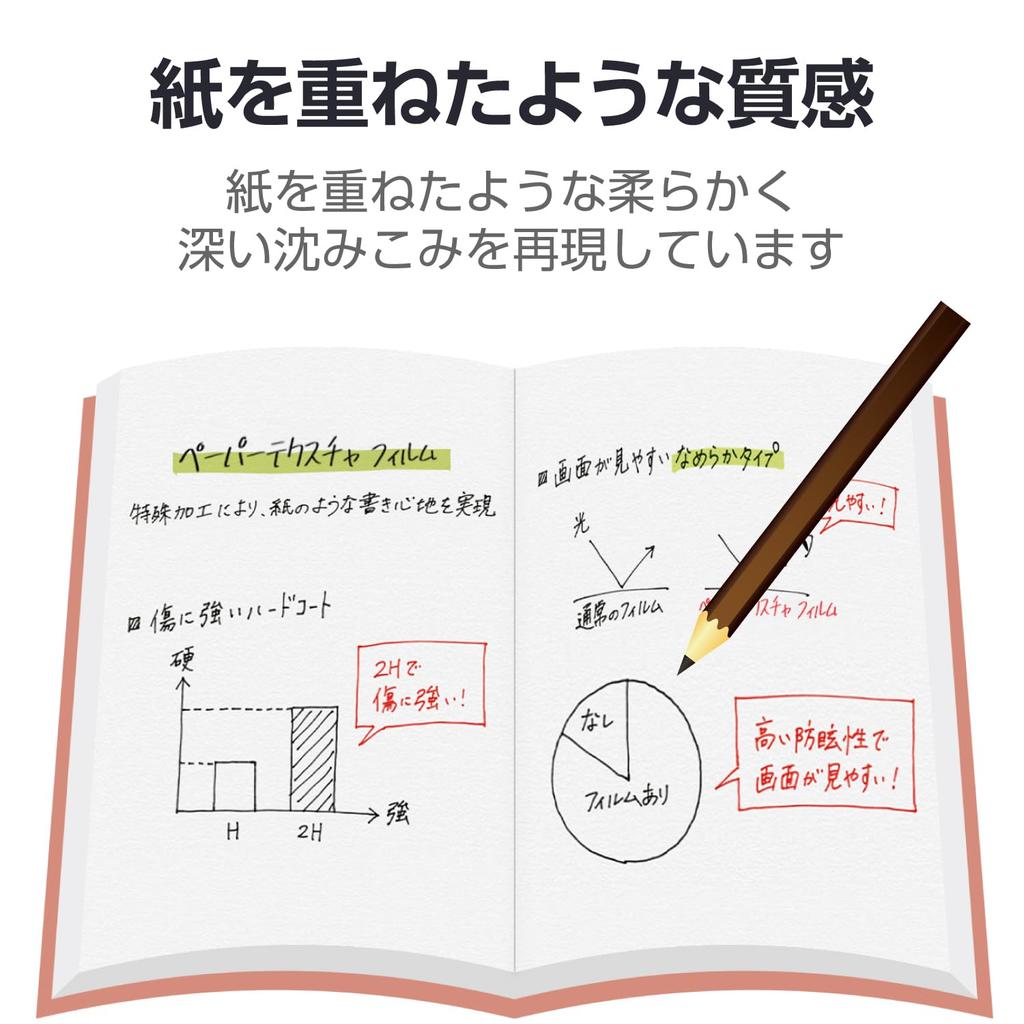 紙を重ねたような質感
紙を重ねたような柔らかく
深い沈みこみを再現しています
ペーパーテクスチャフィルム
特殊加工により、紙のような書き心地を実現
傷に強いハードコート
硬
2Hで
傷に強い!
強
H
2H
画面が見やすいなめらかタイプ
光
やすい!
通常のフィルム
スチャフィルム
なし
フィルムあり
高い防眩性で
画面が見やすい!